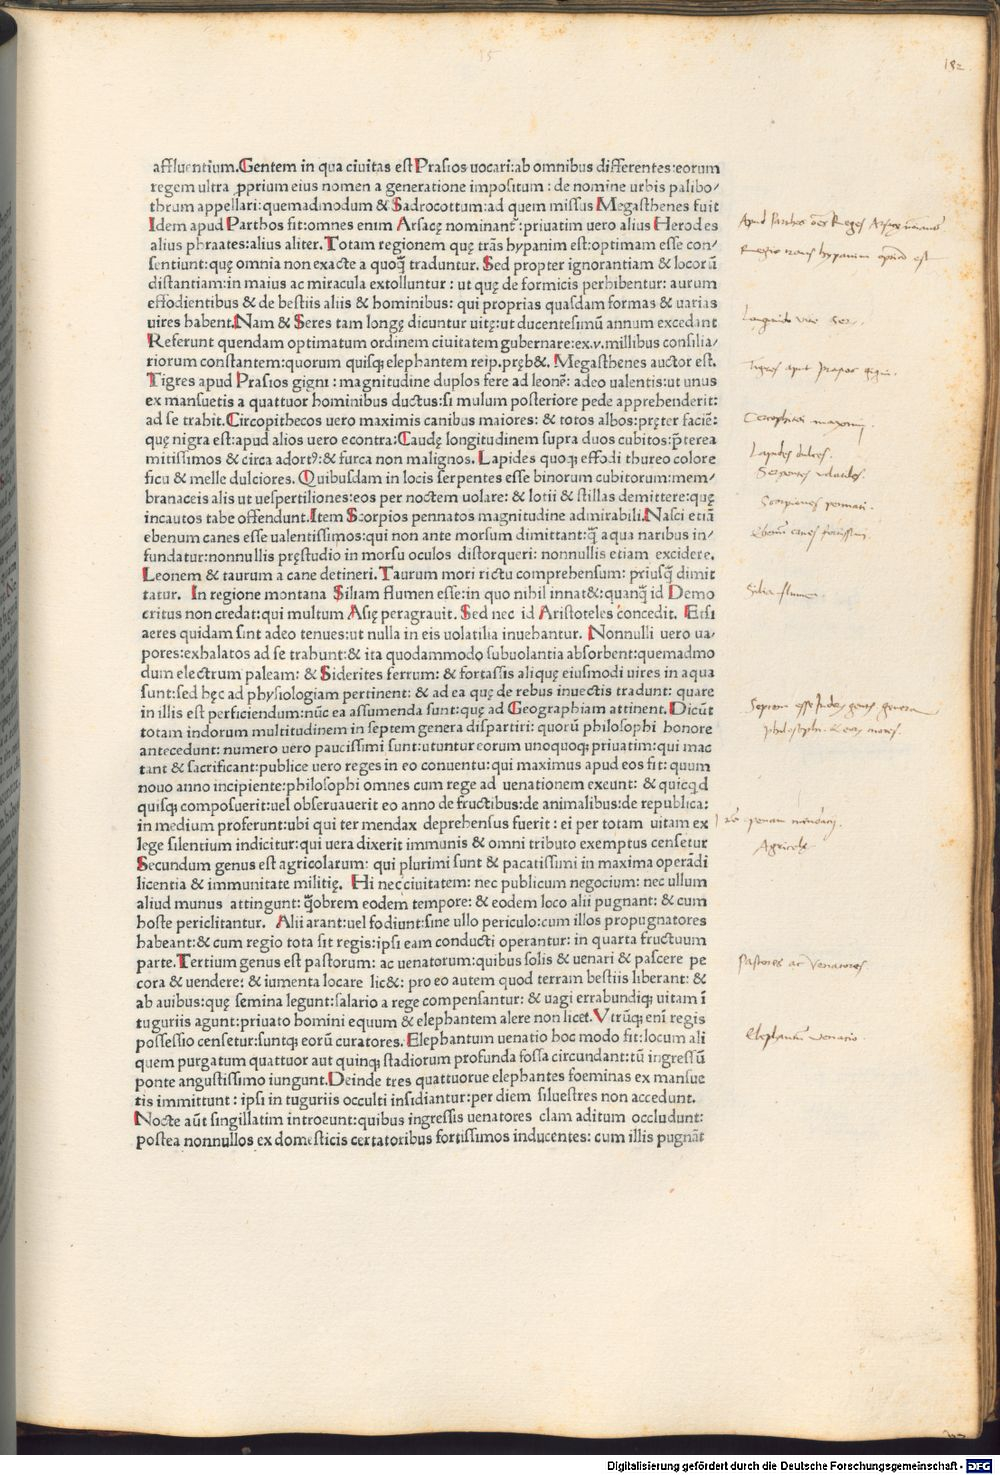 15
182
affluentium. Gentem in qua ciuitas est Prasios uocari: ab omnibus differentes: eorum
regem ultra ꝓprium eius nomen a generatione impositum : de nomine urbis palibo/
thrum appellari: quemadmodum & Sadrocottum: ad quem missus Megasthenes fuit
Idem apud Parthos fit: omnes enim Arsacę nominant᷑: priuatim uero alius Herodes
alius phraates: alius aliter. Totam regionem quę trãs hypanim est: optimam esse con/
sentiunt: quę omnia non exacte a quoq̃ traduntur. Sed propter ignorantiam & locorũ
distantiam: in maius ac miracula extolluntur : ut quę de formicis perhibentur: aurum
effodientibus & de bestiis aliis & hominibus: qui proprias quasdam formas & uarias
uires habent. Nam & Seres tam longę dicuntur uitę: ut ducentesimũ annum excedant
Referunt quendam optimatum ordinem ciuitatem gubernare: ex .v. millibus consilia/
riorum constantem: quorum quisq; elephantem reip. pręb&. Megasthenes auctor est.
Tigres apud Prasios gigni : magnitudine duplos fere ad leonẽ: adeo ualentis: ut unus
ex mansuetis a quattuor hominibus ductus: si mulum posteriore pede apprehenderit:
ad se trahit. Circopithecos uero maximis canibus maiores: & totos albos: pręter faciẽ:
quę nigra est: apud alios uero econtra: Caudę longitudinem supra duos cubitos: p̃terea
mitissimos & circa adortꝰ: & furca non malignos. Lapides quoq; effodi thureo colore
ficu & melle dulciores. Quibusdam in locis serpentes esse binorum cubitorum: mem/
branaceis alis ut uespertiliones: eos per noctem uolare: & lotii & stillas demittere: quę
incautos tabe offendunt. Item Scorpios pennatos magnitudine admirabili. Nasci etiã
ebenum canes esse ualentissimos: qui non ante morsum dimittant: q̃ aqua naribus in/
fundatur: nonnullis pręstudio in morsu oculos distorqueri: nonnullis etiam excidere.
Leonem & taurum a cane detineri. Taurum mori rictu comprehensum: priusq̃ dimit
tatur. In regione montana Siliam flumen esse: in quo nihil innat&: quanq̃ id Demo
critus non credat: qui multum Asię peragrauit. Sed nec id Aristoteles concedit. Etsi
aeres quidam sint adeo tenues: ut nulla in eis uolatilia inuehantur. Nonnulli uero ua/
pores: exhalatos ad se trahunt: & ita quodammodo subuolantia absorbent: quemadmo
dum electrum paleam: & Siderites ferrum: & fortassis aliquę eiusmodi uires in aqua
sunt: sed hęc ad physiologiam pertinent: & ad ea quę de rebus inuectis tradunt: quare
in illis est perficiendum: nũc ea assumenda sunt: quę ad Geographiam attinent. Dicũt
totam indorum multitudinem in septem genera dispartiri: quorũ philosophi honore
antecedunt: numero uero paucissimi sunt: utuntur eorum unoquoq; priuatim: qui mac
tant & sacrificant: publice uero reges in eo conuentu: qui maximus apud eos fit: quum
nouo anno incipiente: philosophi omnes cum rege ad uenationem exeunt: & quicqd
quisq; composuerit: uel obseruauerit eo anno de fructibus: de animalibus: de republica:
in medium proferunt: ubi qui ter mendax deprehensus fuerit : ei per totam uitam ex
lege silentium indicitur: qui uera dixerit immunis & omni tributo exemptus censetur
Secundum genus est agricolarum: qui plurimi sunt & pacatissimi in maxima operãdi
licentia & immunitate militię. Hi nec ciuitatem: nec publicum negocium: nec ullum
aliud munus attingunt: q̃obrem eodem tempore: & eodem loco alii pugnant: & cum
hoste periclitantur. Alii arant: uel fodiunt: sine ullo periculo: cum illos propugnatores
habeant: & cum regio tota sit regis: ipsi eam conducti operantur: in quarta fructuum
parte. Tertium genus est pastorum: ac uenatorum: quibus solis & uenari & pascere pe
cora & uendere: & iumenta locare lic&: pro eo autem quod terram bestiis liberant: &
ab auibus: quę semina legunt: salario a rege compensantur: & uagi errabundiq; uitam ĩ
tuguriis agunt: priuato homini equum & elephantem alere non licet. Vtrũq; enĩ regis
possessio censetur: suntq; eorũ curatores. Elephantum uenatio hoc modo fit: locum ali
quem purgatum quattuor aut quinq; stadiorum profunda fossa circundant: tũ ingressũ
ponte angustissimo iungunt. Deinde tres quattuorue elephantes foeminas ex mansue
tis immittunt : ipsi in tuguriis occulti insidiantur: per diem siluestres non accedunt.
Nocte aũt singillatim introeunt: quibus ingressis uenatores clam aditum occludunt:
postea nonnullos ex domesticis certatoribus fortissimos inducentes: cum illis pugnãt
Apud Parthos oẽs Reges Arsacę
Regio trans hypanim est
Longitudo vite Ser.
Tigres aput Prasios gigni.
Cercopitheci maximi.
Lapides dulces.
Serpentes volatiles.
Scorpiones pennati.
Ebenũ canes fortissimi.
Silia flumen.
Septem esse Indorum genera
philosophi. & eorum mores.
penam mendacij.
Agricolę
Pastores ac Venatores
Elephantum venatio.
Digitalisierung gefördert durch die Deutsche Forschungsgemeinschaft - DFG